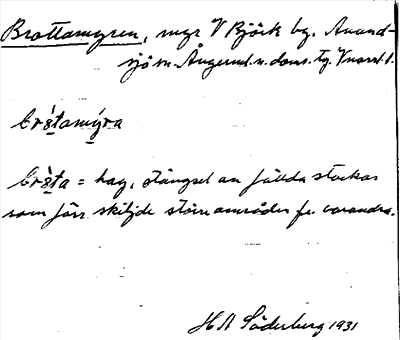 Brattamyren, myr V Björk by. Anund-
sjö sn. Ångerml. n. doms. tg. Vnorrl. l.
brã̀tamýra
brã̀ta = hag, stängsel av fällda stockar
som förr skiljde större områden fr. varandra.
H A Söderberg 1931